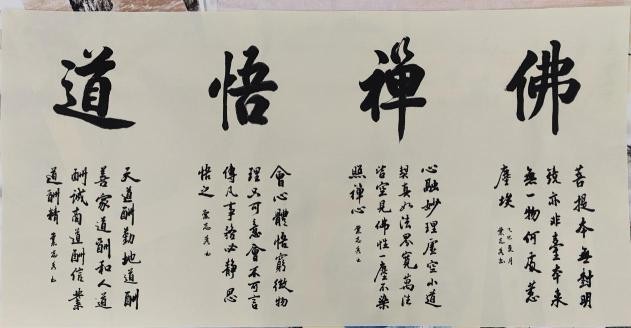 佛
菩提本無對明
鏡亦非臺本來
無一物何處惹
塵埃
禪
心融妙理虛空小道
契真如法界寬萬法
皆空見佛性一塵不染
照禪心
悟
會心體悟窮微物
理又可意會不可言
傳凡事務必靜思
悟之
道
天道酬勤地道酬
善家道酬和人道
酬誠商道酬信業
道酬精